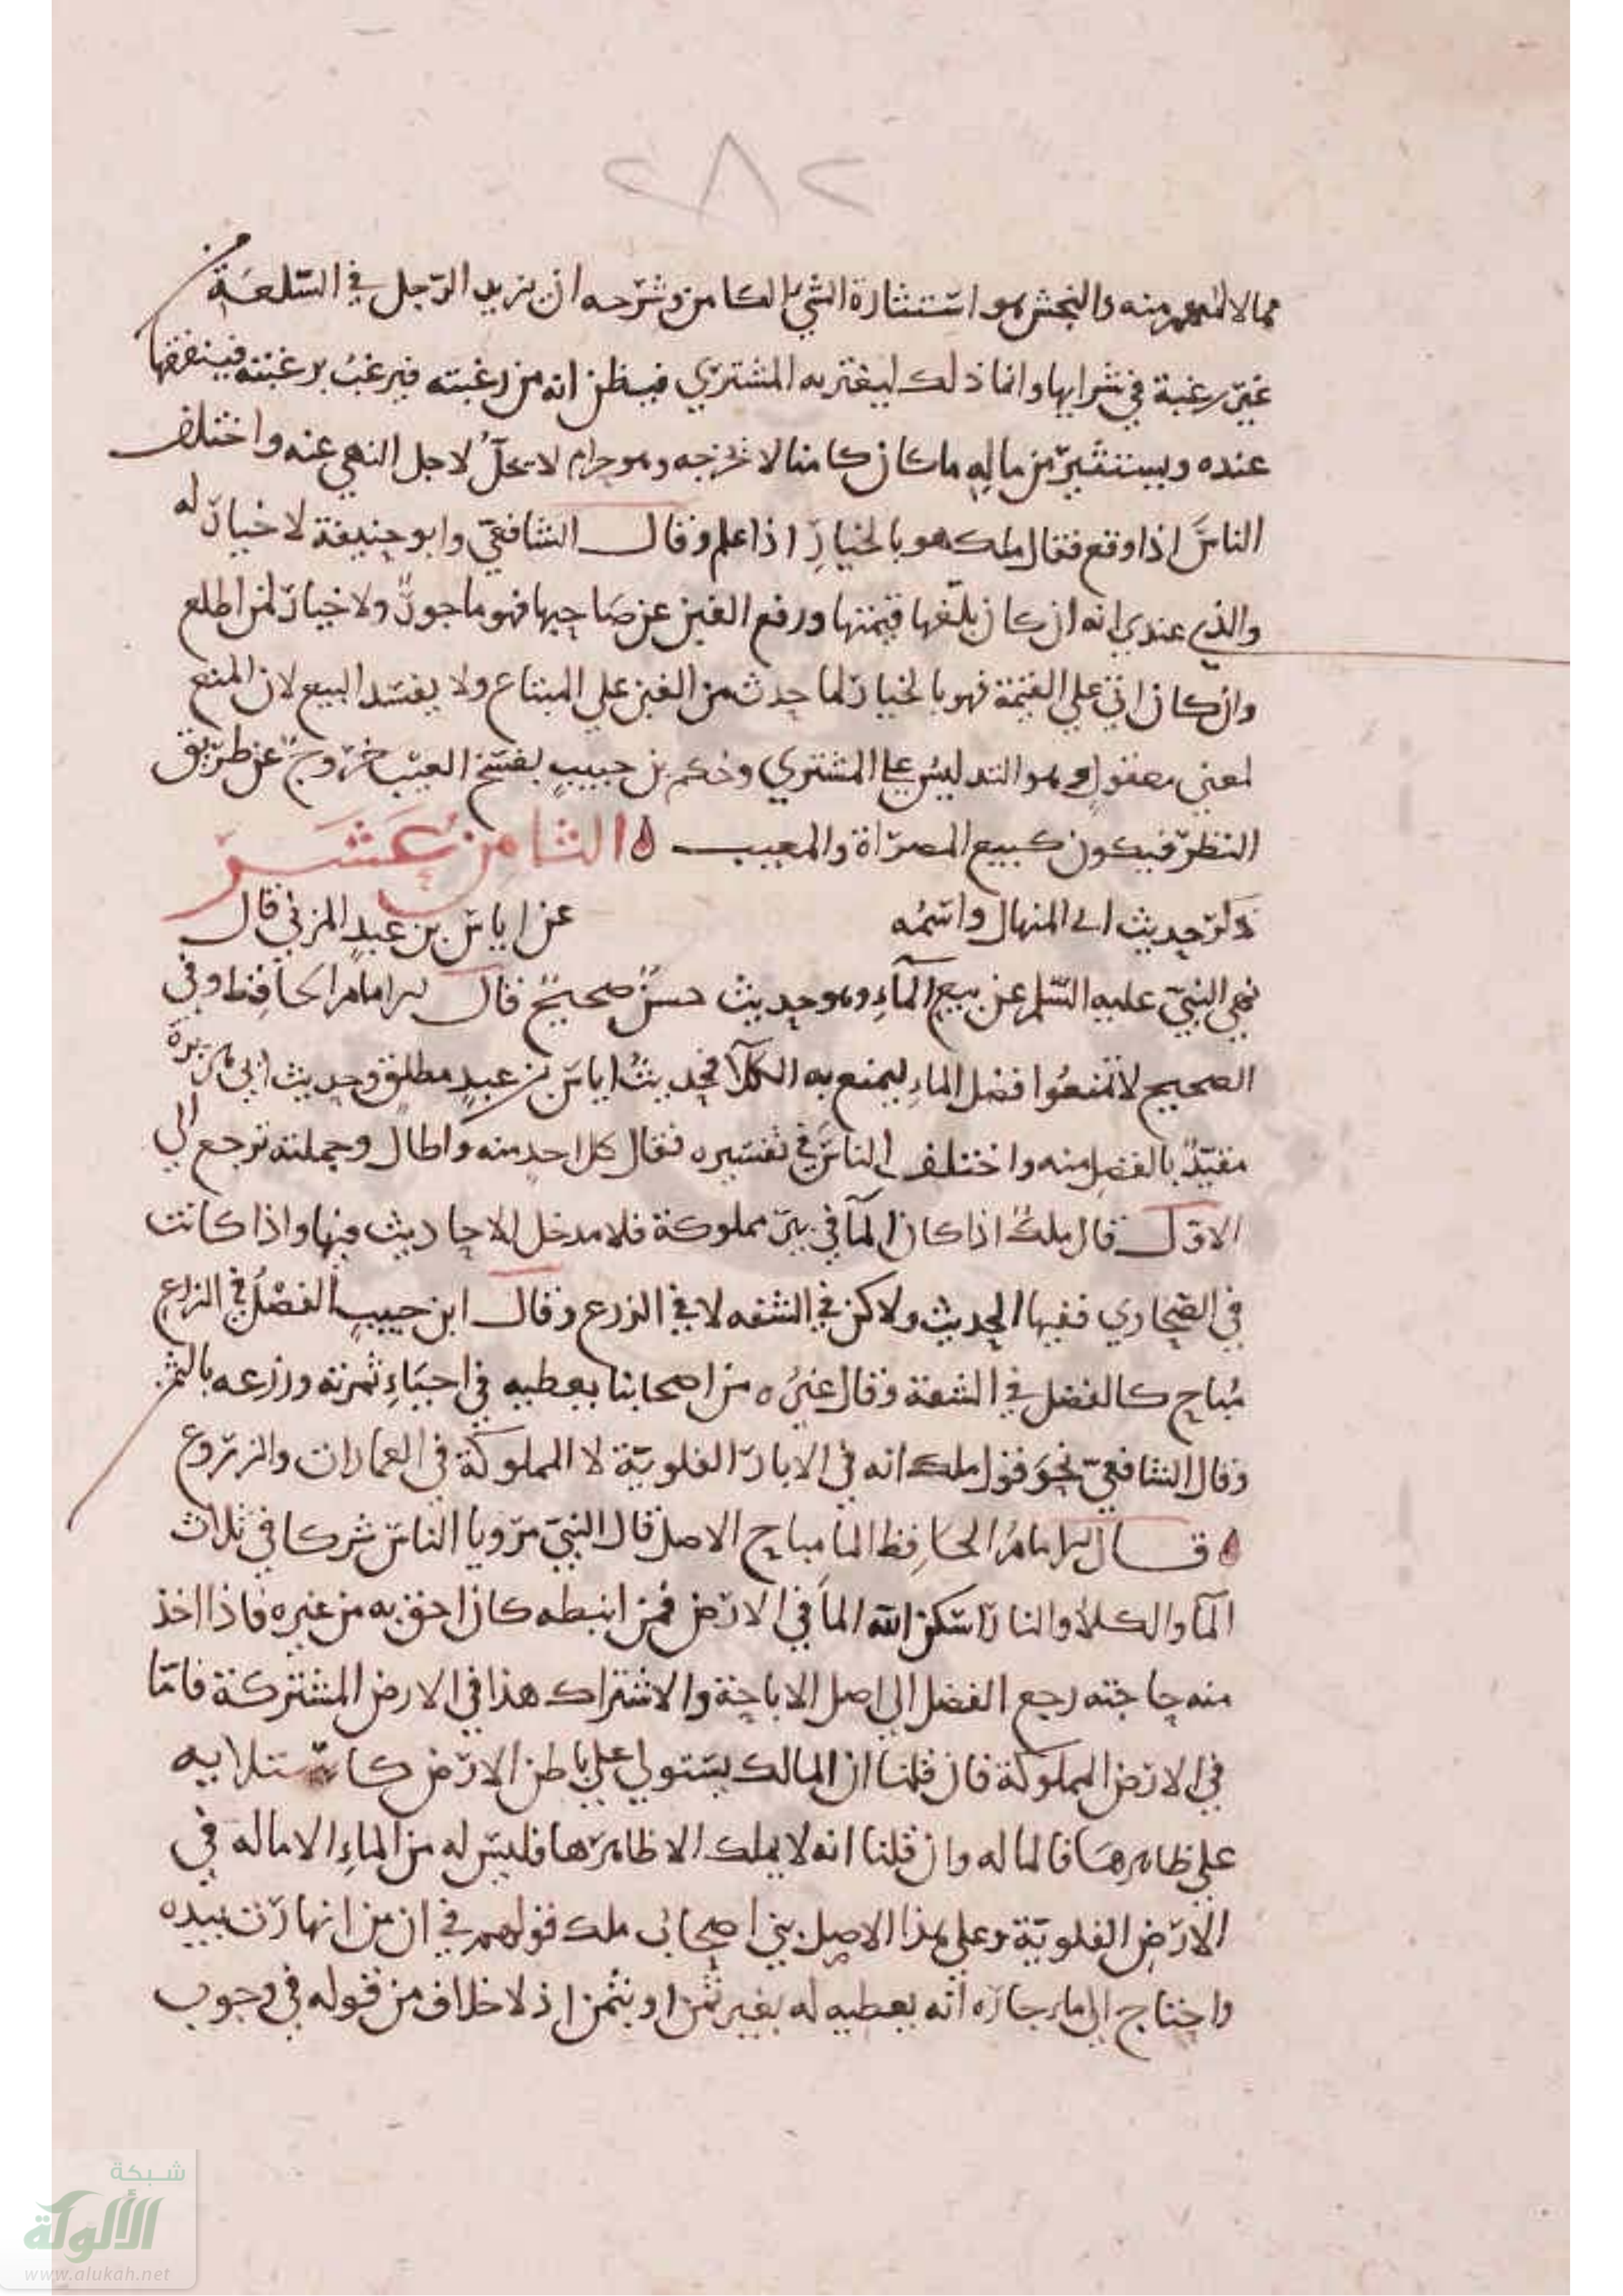 ٢٨٢
مما لا منه والنجش هو استثارة الشيء الكامن وشرحه ان يزيد الرجل في السلعة من
غير رغبة في شرايها وانما ذلك ليغتر به المشتري فيظن انه من رغبته فيرغب برغبته فينفقها
عنده ويستثير من ماله ما كان كامنا لا يخرجه وهو حرام لا يحل لاجل النهي عنه واختلف
الناس اذا وقع فقال ملك هو بالخيار اذا علم وقال الشافعي وابو حنيفة لا خيار له
والذي عندي انه ان كان بلغها قيمتها ورفع الغبن عن صاحبها فهو ماجور ولا خيار لمن اطلع
وان كان على القيمة فهو بالخيار لما حدث من الغبن علي المبتاع ولا يفسد البيع لان المنع
لمعني معقول وهو التدليس علي المشتري وحكم بن حبيب بفسخ العيب خروج عن طريق
النظر فيكون كبيع المصراة والمعيب الثامن عشر
ذكر حديث ابي المنهال واسمه عن اياس بن عبد المزني قال
نهي النبي عليه السلم عن بيع الماء وهو حديث حسن صحيح قال الامام الحافظ وفي
الصحيح لا تمنعوا فضل الماء ليمنع به الكلا فحديث اياس بن عبد مطلق وحديث ابي هريرة
مقيد بالفضل منه واختلف الناس في تفسيره فقال كل احد منه واطال وجملته ترجع الي
الاول قال ملك اذا كان الما في بير مملوكة فلا مدخل للاحاديث فيها واذا كانت
في الصحاري ففيها الحديث ولاكن في الشفه لا في الزرع وقال ابن حبيب الفضل في الزرع
مباح كالفضل في الشفة وقال غيره من اصحابنا يعطيه في احياء ثمرته وزرعه بالثمن
وقال الشافعي نحو قول ملك انه في الابار الفلوية لا المملوكة في العمارات والزروع
قال الامام الحافظ الما مباح الاصل قال النبي مرويا الناس شركا في ثلاث
الما والكلا والنار اسكن الله الما في الارض فمن انبطه كان احق به من غيره فاذا اخذ
منه حاجته رجع الفضل الي اصل الاباحة والاشتراك هذا في الارض المشتركة فاما
في الارض المملوكة فان قلنا ان المالك يستولي علي باطن الارض كاستلايه
على ظاهرها فالما له وان قلنا انه لا يملك الا ظاهرها فليس له من الماء الا ماله في
الارض الفلوية وعلي هذا الاصل بني اصحاب ملك قولهم في ان من انهارت بيره
واحتاج الي ماء جاره انه يعطيه له بغير ثمن او بثمن اذ لا خلاف من قوله في وجوب
شبكة
الألوكة
www.alukah.net